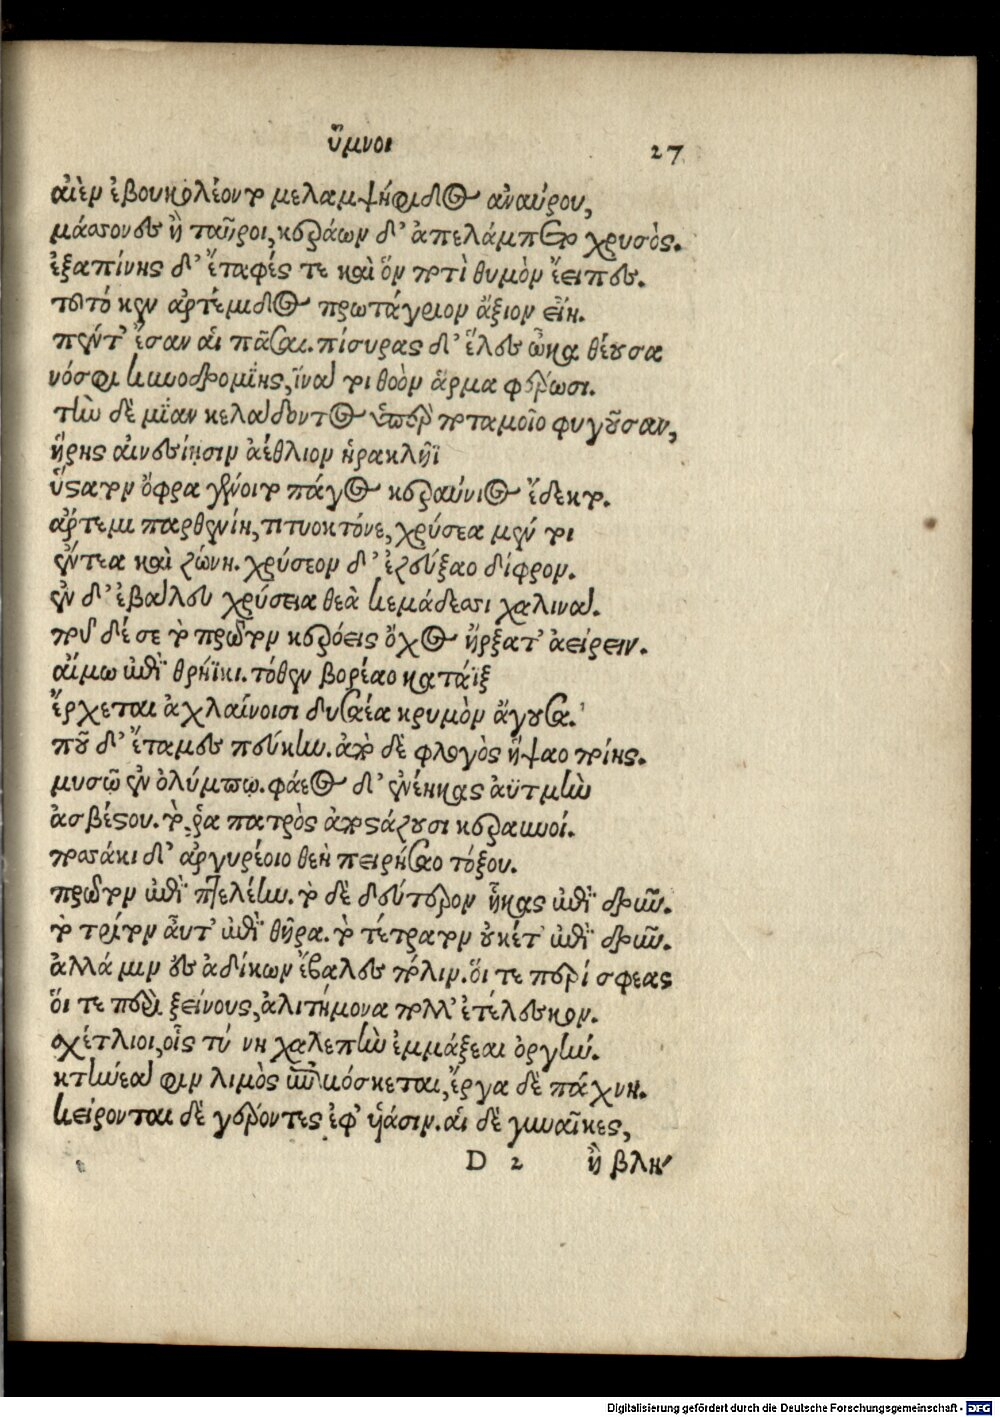 ὕμνοι 27
αἰὲν ἐβουκολέοντο μελαμψήφιδος ἀναύρου,
μάσσονες ἢ ταῦροι, κεράων δ' ἀπελάμπετο χρυσὸς.
ἐξαπίνης δ' ἔταφές τε καὶ ὃν ποτὶ θυμὸν ἔειπες.
τοῦτό κεν ἀρτέμιδος πρωτάγριον ἄξιον εἴη.
πέντ' ἔσαν αἱ πᾶσαι. πίσυρας δ' ἕλες ὦκα θέουσα
νόσφι κυνοδρομίης, ἵνα τοι θοὸν ἅρμα φέρωσι.
τὴν δὲ μίαν κελάδοντος ὑπὲρ ποταμοῖο φυγοῦσαν,
ἥρης αἰνεσίῃσιν ἀέθλιον ἡρακλῆϊ
ὕστατον ὄφρα γένοιτο πάγος κεραύνιος ἔδεκτο.
ἄρτεμι παρθενίη, τιτυοκτόνε, χρύσεα μέν τοι
ἔντεα καὶ ζώνη. χρύσεον δ' ἐζεύξαο δίφρον.
ἐν δ' ἐβάλευ χρύσεια θεὰ κεμάδεσσι χαλινά.
ποῦ δέ σε τὸ πρῶτον κερόεις ὄχος ἤρξατ' ἀείρειν.
αἵμω ἐπὶ θρήϊκι. τόθεν βορέαο κατάϊξ
ἔρχεται ἀχλαίνοισι δυσαέα κρυμὸν ἄγουσα.
ποῦ δ' ἔταμες πεύκην. ἀπὸ δὲ φλογὸς ἥψαο ποίης.
μυσῷ ἐν ὀλύμπῳ. φάεος δ' ἐνέηκας ἀϋτμὴν
ἀσβέστου. τό ῥα πατρὸς ἀποστάζουσι κεραυνοί.
ποσσάκι δ' ἀργυρέοιο θεὴ πειρήσαο τόξου.
πρῶτον ἐπὶ πτελέην. τὸ δὲ δεύτερον ἧκας ἐπὶ δρῦν.
τὸ τρίτον αὖτ' ἐπὶ θῆρα. τὸ τέτρατον οὐκέτ' ἐπὶ δρῦν.
ἀλλά μιν εἰς ἀδίκων ἔβαλες πόλιν. οἵ τε περί σφεας
οἵ τε περὶ ξείνους, ἀλιτήμονα πολλ' ἐτέλεσκον.
σχέτλιοι, οἷς τύ νη χαλεπὴν ἐμμάξεαι ὀργήν.
κτήνεά φιν λιμὸς καταβόσκεται, ἔργα δὲ πάχνη.
κείρονται δὲ γέροντες ἐφ' υἱάσιν. αἱ δὲ γυναῖκες,
D 2 ἢ βλη
Digitalisierung gefördert durch die Deutsche Forschungsgemeinschaft - DFG